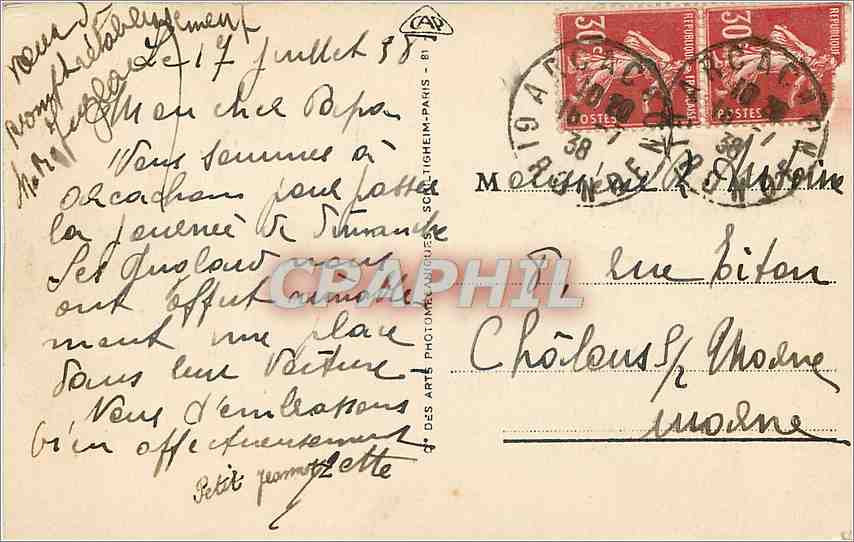 Le 17 Juillet 38
Mon cher Papa
Nous sommes à
Arcachon pour passer
la journée de dimanche
Les Anglard nous
ont offert aimable-
ment une place
dans leur voiture
Nous t'embrassons
bien affectueusement
Petit Jeannot Zette
CAP
Cie DES ARTS PHOTOMECANIQUES SCHILTIGHEIM-PARIS - 81
30c
REPUBLIQUE FRANÇAISE
POSTES
30c
REPUBLIQUE FRANÇAISE
POSTES
ARCACHON
GIRONDE
38
ARCACHON
GIRONDE
38
Monsieur L. Antoine
8, rue Titon
Châlons s/ Marne
Marne
CPAPHIL